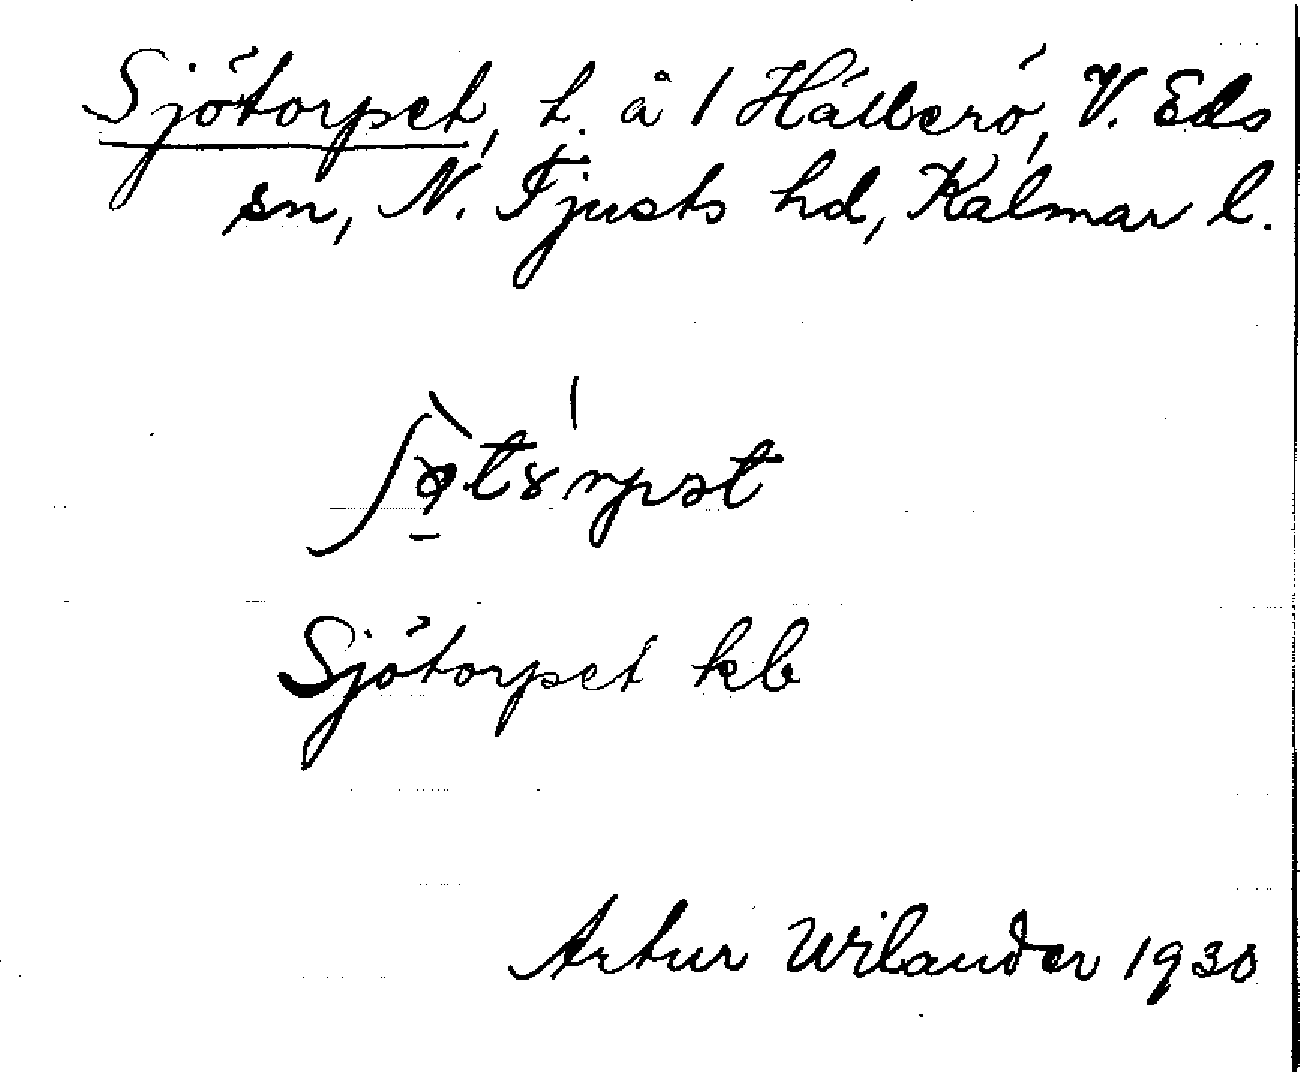 Sjötorpet, t. å 1 Hálberó, V. Eds
sn, N. Tjusts hd, Kalmar l.
Sjötorpet kb
Artur Wilander 1930